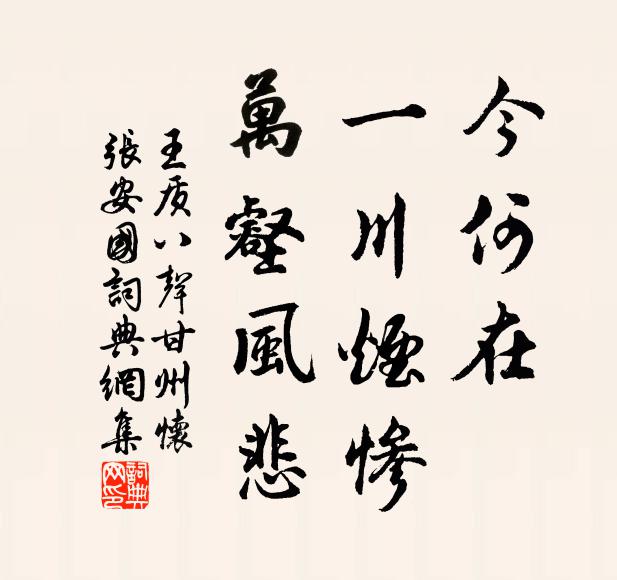 今何在
一川煙慘
萬壑風悲
王质八聲甘州懷
張安國詞典網集
詞典
网印